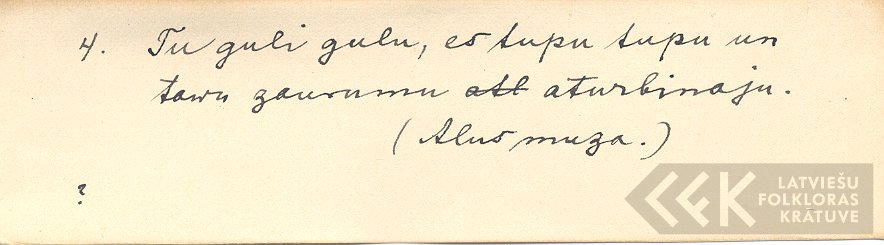 4. Tu guli gulu, es tupu tupu un
tavu zaurumu aturbinaju.
(Alus muza.)
?
LATVIEŠU
FOLKLORAS
KRĀTUVE